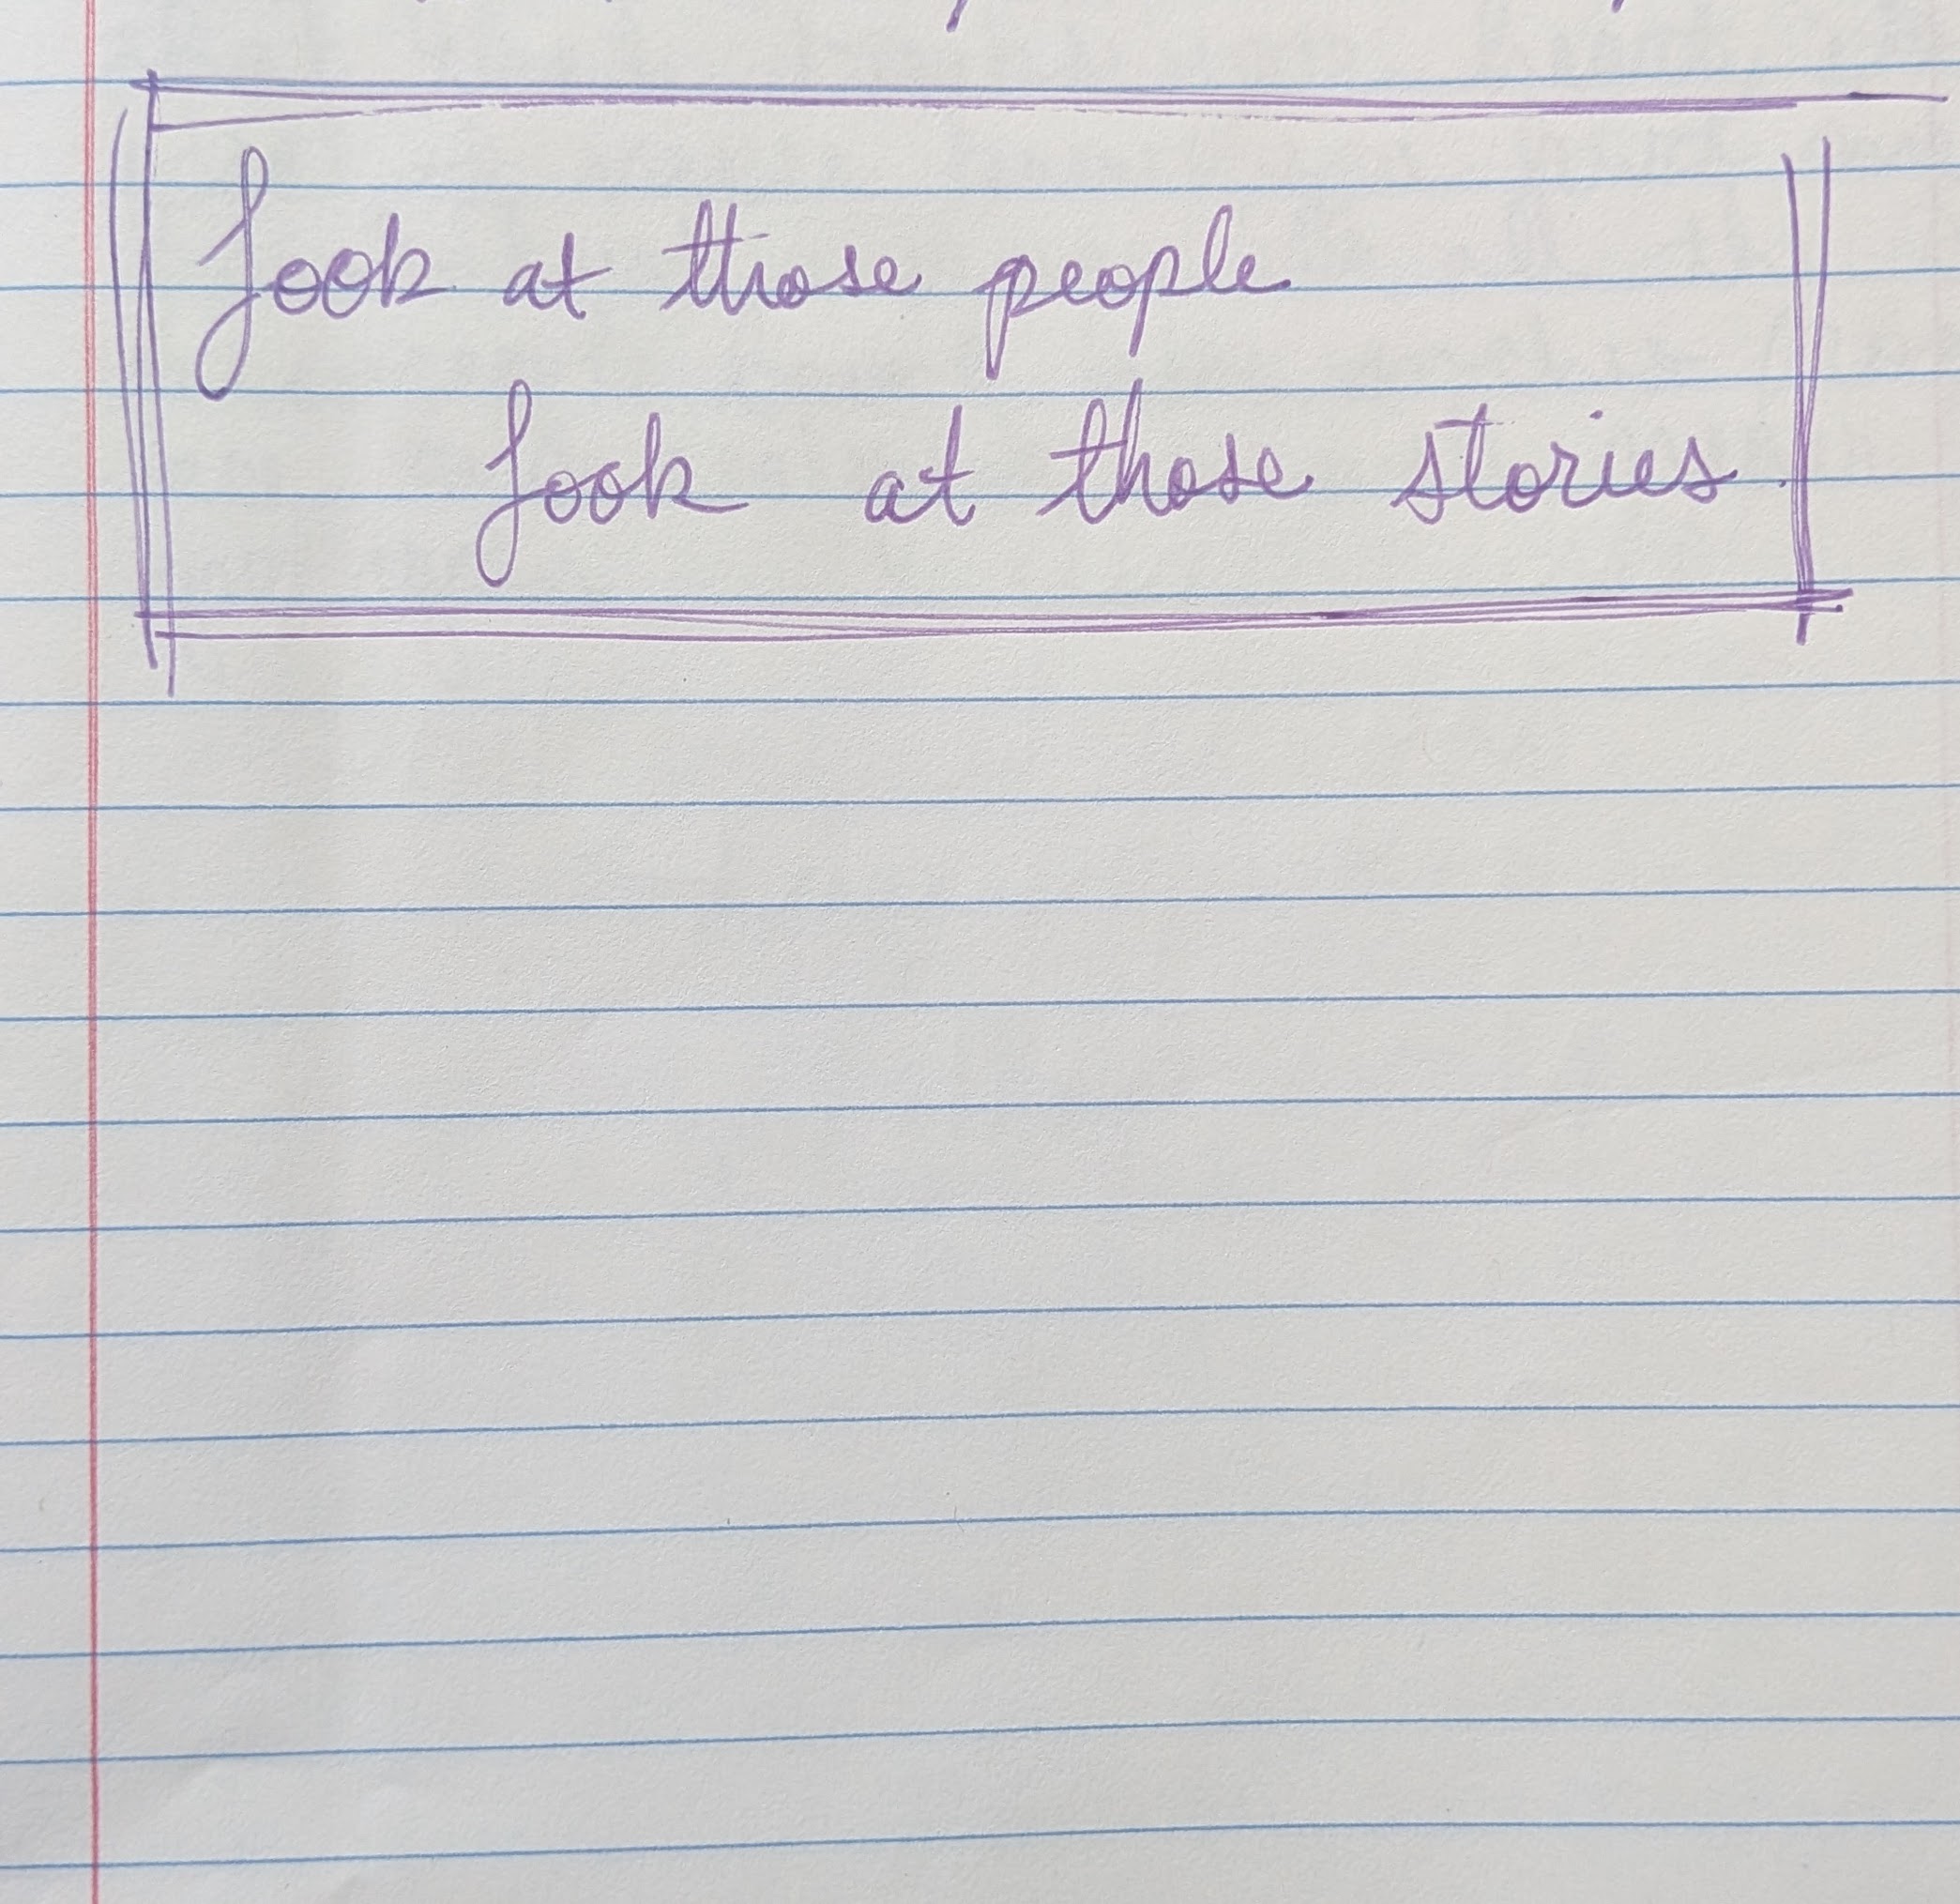 Look at those people
Look at those stories.